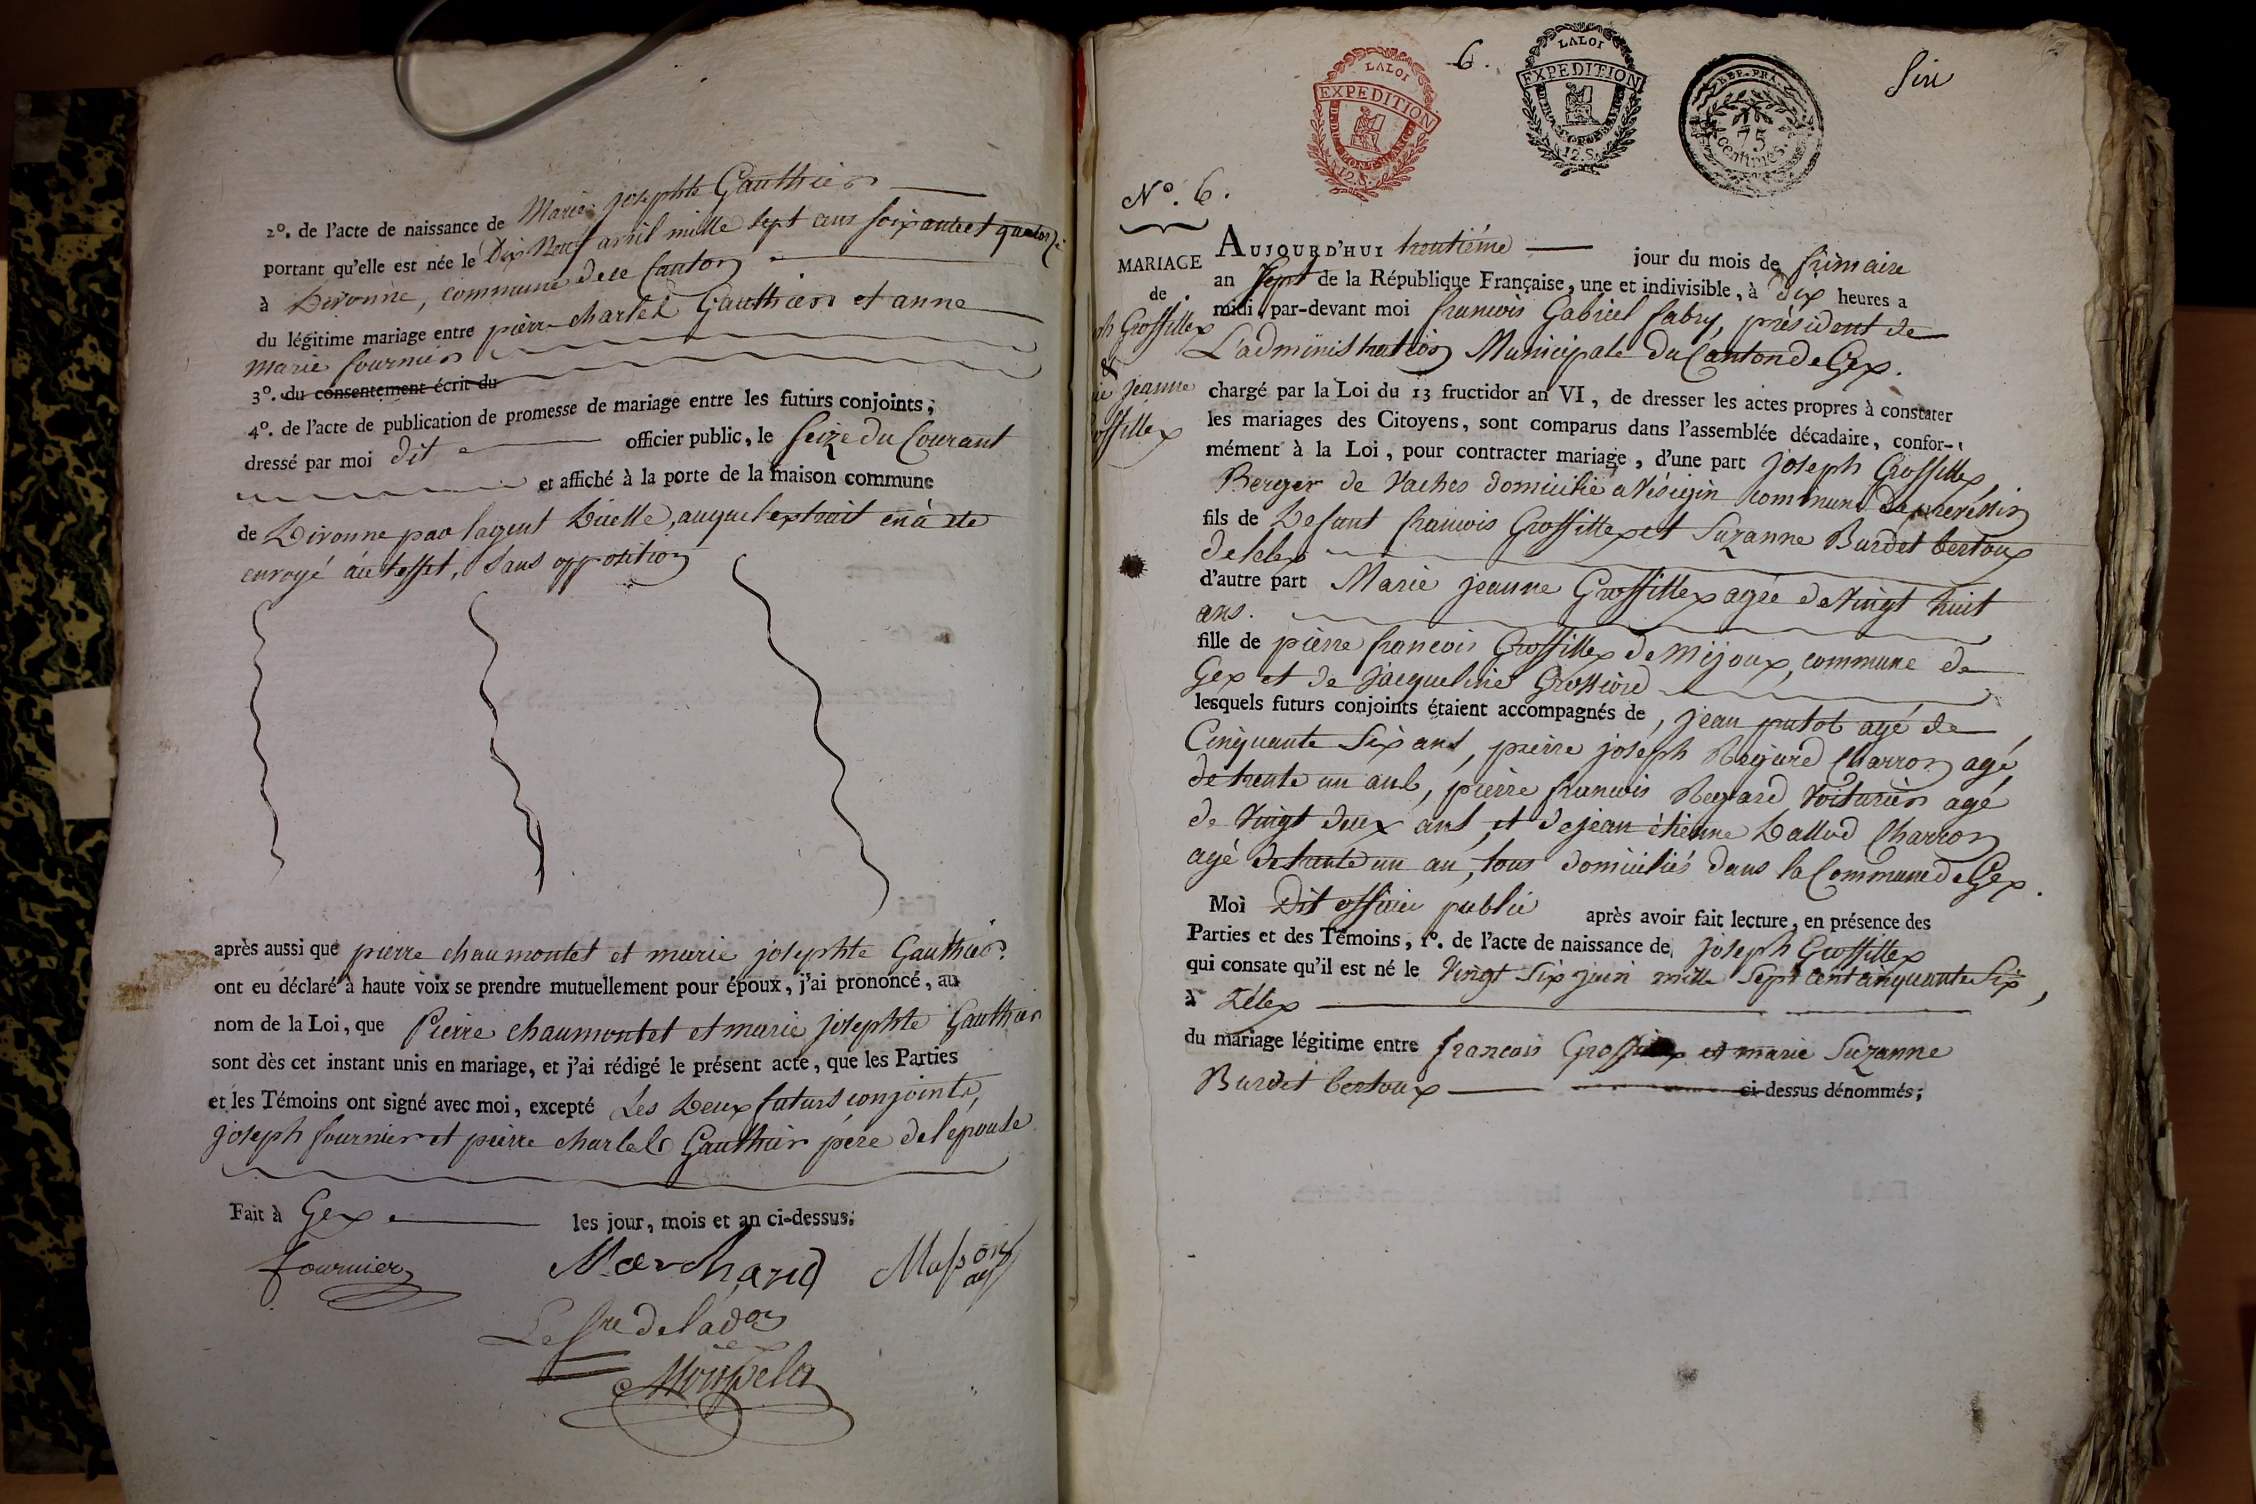 2º. de l'acte de naissance de Marie josephte Gauthier
portant qu'elle est née le Dix Neuf avril mille sept cens soixante et quatorze
à Divonne, commune de ce Canton
du légitime mariage entre pierre charles Gauthier et anne
marie fournier
3º. du consentement écrit du
4º. de l'acte de publication de promesse de mariage entre les futurs conjoints;
dressé par moi dit officier public, le seize du Courant
et affiché à la porte de la maison commune
de Divonne par lagent Dicelle, auquel extrait en à ete
envoyé áu effet, sans opposition
après aussi que pierre chaumontet et marie josephte Gauthier
ont eu déclaré à haute voix se prendre mutuellement pour époux, j'ai prononcé, au
nom de la Loi, que Pierre chaumontet et marie josephte Gauthier
sont dès cet instant unis en mariage, et j'ai rédigé le présent acte, que les Parties
et les Témoins ont signé avec moi, excepté Les Deux futurs conjoints,
joseph fournier et pierre charles Gauthier pére de lépouse
Fait à Gex les jour, mois et an ci-dessus.
fournier Marchand Masson
Le de lad
6.
LA LOI
EXPEDITION
12.S.
LA LOI
EXPEDITION
12.S.
REP. FRA.
75
centimes.
Six
Nº. 6.
MARIAGE
de
ph Grossillex
&
ie jeanne
ossillex
AUJOURD'HUI trentiéme jour du mois de frimaire
an Sept de la République Française, une et indivisible, à Dix heures a
midi, par-devant moi francois Gabriel fabry, président de
L'administration Municipale du Canton de Gex.
chargé par la Loi du 13 fructidor an VI, de dresser les actes propres à constater
les mariages des Citoyens, sont comparus dans l'assemblée décadaire, confor-
mément à la Loi, pour contracter mariage, d'une part joseph Grossillex,
Berger de Vaches domicilié a Vésegin commune de prevessin
fils de Defunt francois Grossillex et Suzanne Burdet bertoux
de lelex
d'autre part Marie jeanne Grossillex agée de vingt huit
ans.
fille de pierre francois Grossillex de mijoux, commune de
Gex et de jacqueline Grossiord
lesquels futurs conjoints étaient accompagnés de, jean putot agé de
Cinquante Six ans, pierre joseph Regard Charron agé
de trente un ans, pierre francois Regard voiturier agé
de vingt deux ans, et de jean étienne Dallod Charron
agé de trente un an, tous domiciliés dans la Commune de Gex.
Moi Dit officier public après avoir fait lecture, en présence des
Parties et des Témoins, 1º. de l'acte de naissance de joseph Grossillex
qui consate qu'il est né le vingt Six juin mille Sept cent cinquante Six,
à Lélex
du mariage légitime entre francois Grossillex et marie Suzanne
Burdet bertoux ci-dessus dénommés;